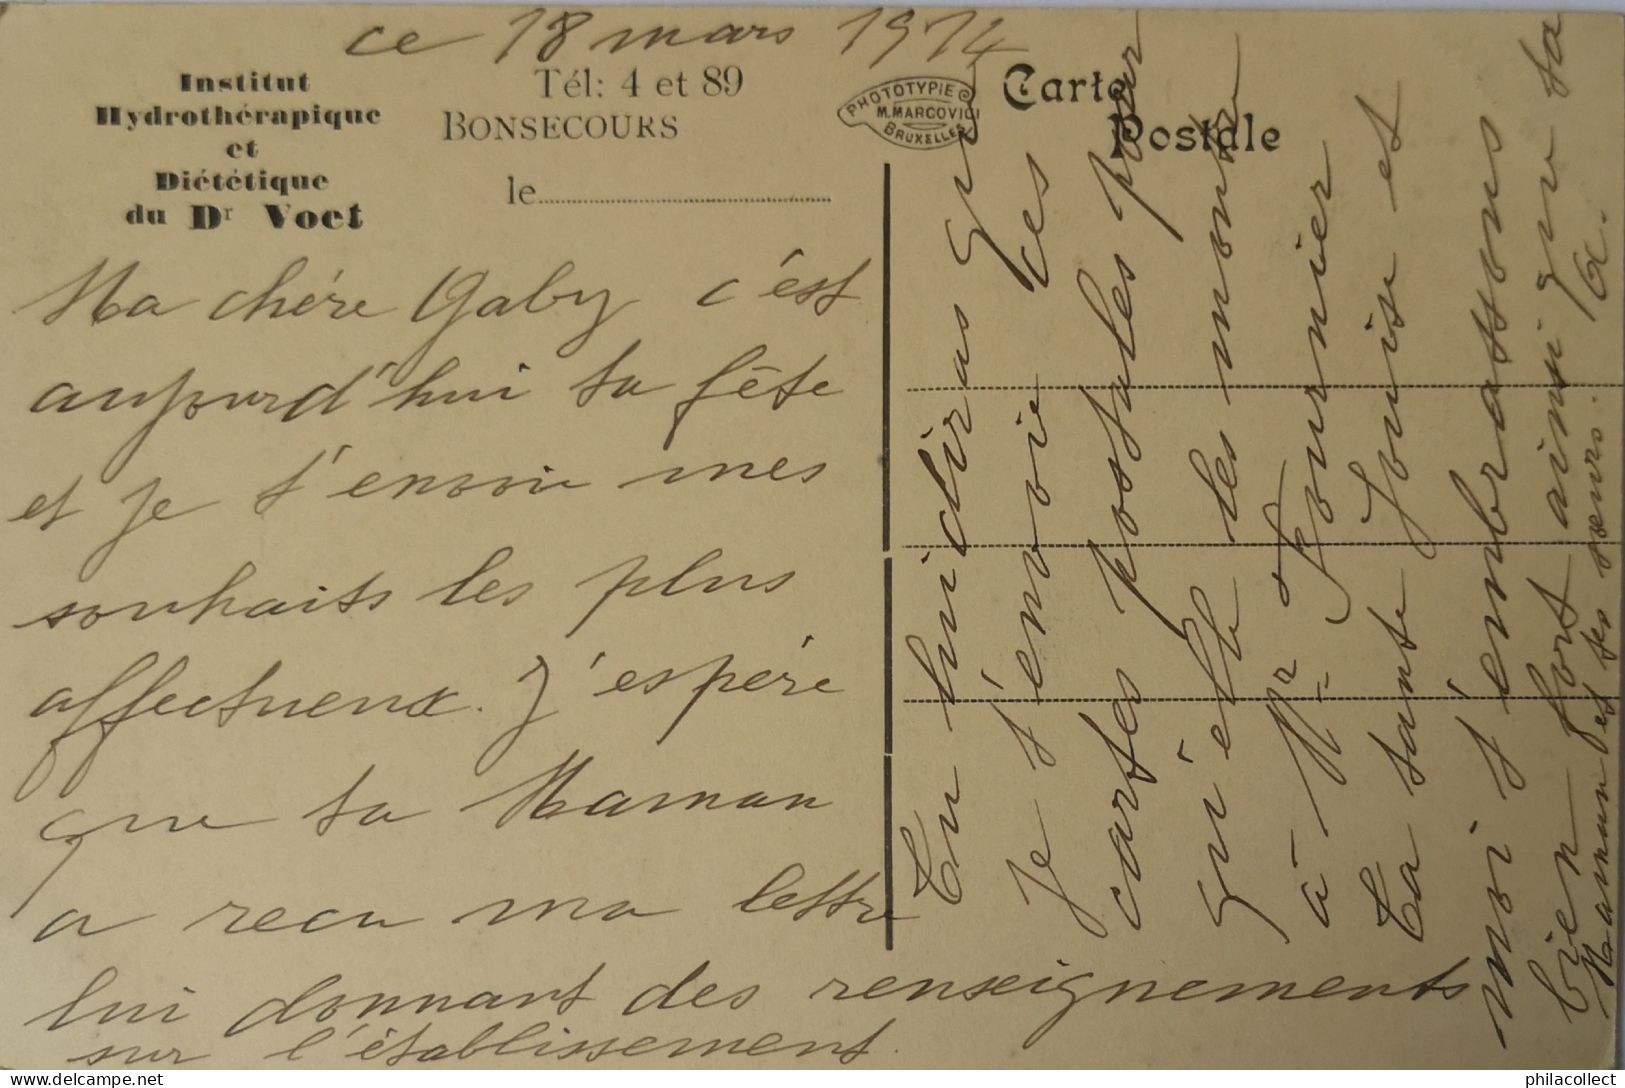 ce 18 mars 1914
Institut
Hydrothérapique
et
Diététique
du Dr Voet
Tél: 4 et 89
BONSECOURS
le
PHOTOTYPIE
M. MARCOVICI
BRUXELLES
Carte
Postale
Ma chère Gaby c'est
aujourd'hui ta fête
et je t'envoie mes
souhaits les plus
affectueux. J'espère
que ta Maman
a reçu ma lettre
lui donnant des renseignements
sur l'établissement.
Tu lui diras que
je t'envoie ces
cartes postales pour
qu'elle les montre
à Mr Fournier
Ta tante Louise et
moi t'embrassons
bien fort ainsi que ta
Maman et tes sœurs.
philacollect
delcampe.net